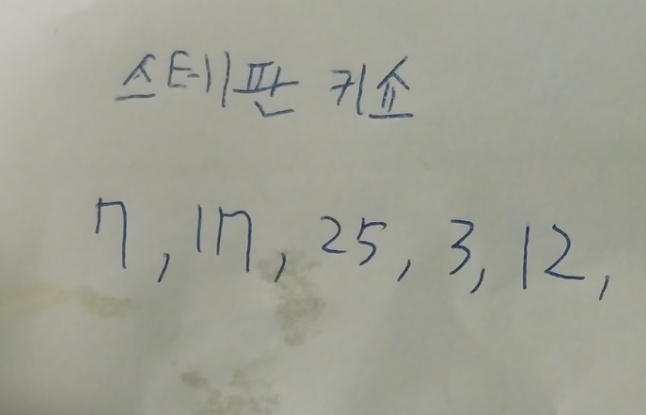 스테판 키쇼
7, 17, 25, 3, 12,